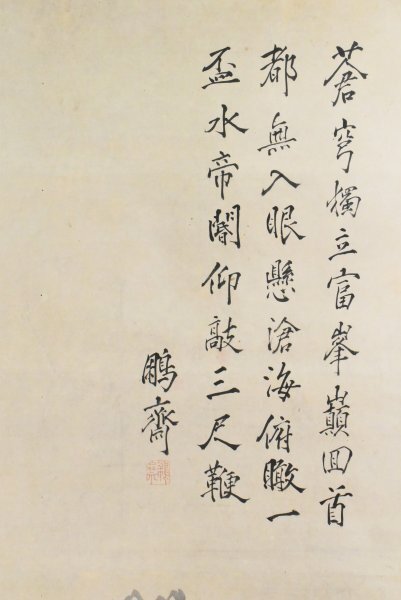 蒼穹獨立富峯巔回首
都無入眼懸滄海俯瞰一
盃水帝閽仰敲三尺鞭
鵬齋